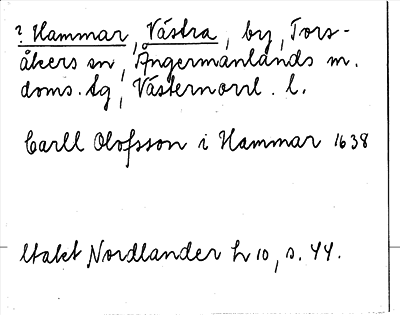 ? Hammar, Västra, by, Tors-
åkers sn, Ångermanlands m.
doms. tg, Västernorrl. l.
Carll Olofsson i Hammar 1638
Utakt Nordlander h 10, s. 44.